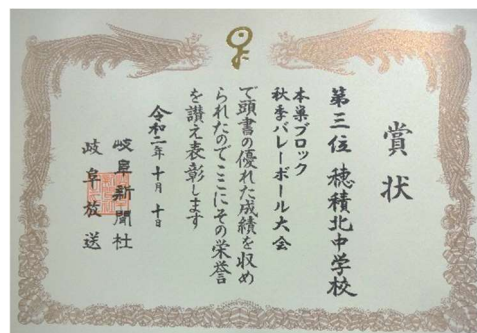 賞状
第三位 穂積北中学校
本巣ブロック
秋季バレーボール大会
で頭書の優れた成績を収め
られたのでここにその栄誉
を讃え表彰します
令和二年十月十日
岐阜新聞社
岐阜放送